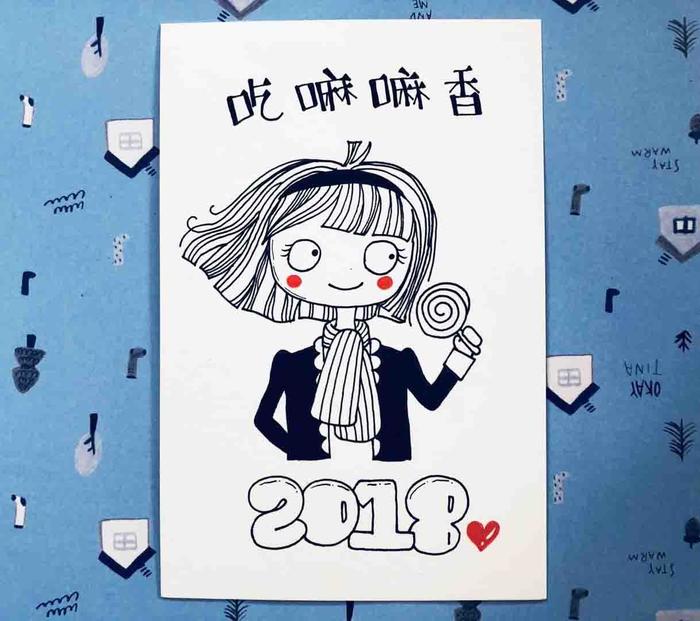 吃嘛嘛香
2018
AND
ME
STAY
WARM
OKAY
TINA
STAY
WARM